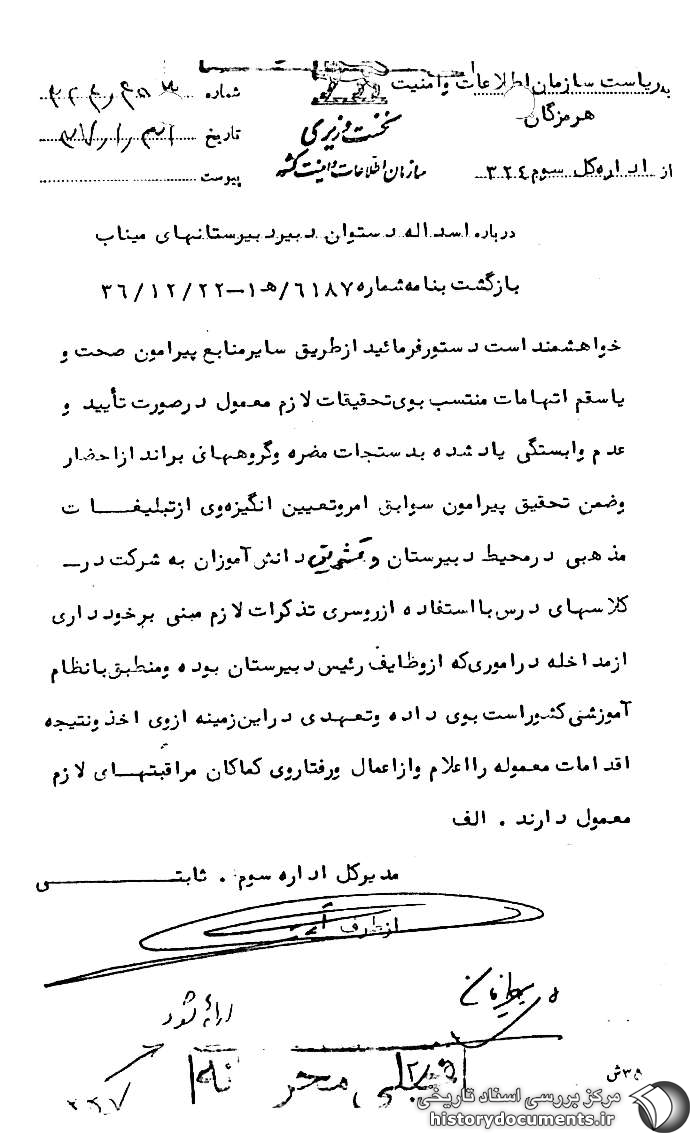 به ریاست سازمان اطلاعات و امنیت
هرمزگان
از اداره کل سوم ۳۲۴
نخست وزیری
سازمان اطلاعات و امنیت کشور
شماره
تاریخ
پیوست
درباره اسداله دستوان دبیر دبیرستانهای میناب
بازگشت بنامه شماره ۶۱۸۷/ه۱-۳۶/۱۲/۲۲
خواهشمند است دستور فرمائید از طریق سایر منابع پیرامون صحت و
یا سقم اتهامات منتسب بوی تحقیقات لازم معمول در صورت تأیید و
عدم وابستگی یاد شده بدستجات مضره و گروههای برانداز احضار
و ضمن تحقیق پیرامون سوابق امر و تعیین انگیزه وی از تبلیغات
مذهبی در محیط دبیرستان و دانش آموزان به شرکت در
کلاسهای درس با استفاده از روسری تذکرات لازم مبنی بر خودداری
از مداخله در اموری که از وظایف رئیس دبیرستان بوده و منطبق با نظام
آموزشی کشور است بوی داده و تعهدی در این زمینه از وی اخذ و نتیجه
اقدامات معموله را اعلام و از اعمال و رفتار وی کماکان مراقبتهای لازم
معمول دارند . الف
مدیر کل اداره سوم . ثابتی
از طرف
ارائه شود
خیلی محرمانه
۳۵ش
مرکز بررسی اسناد تاریخی
historydocuments.ir